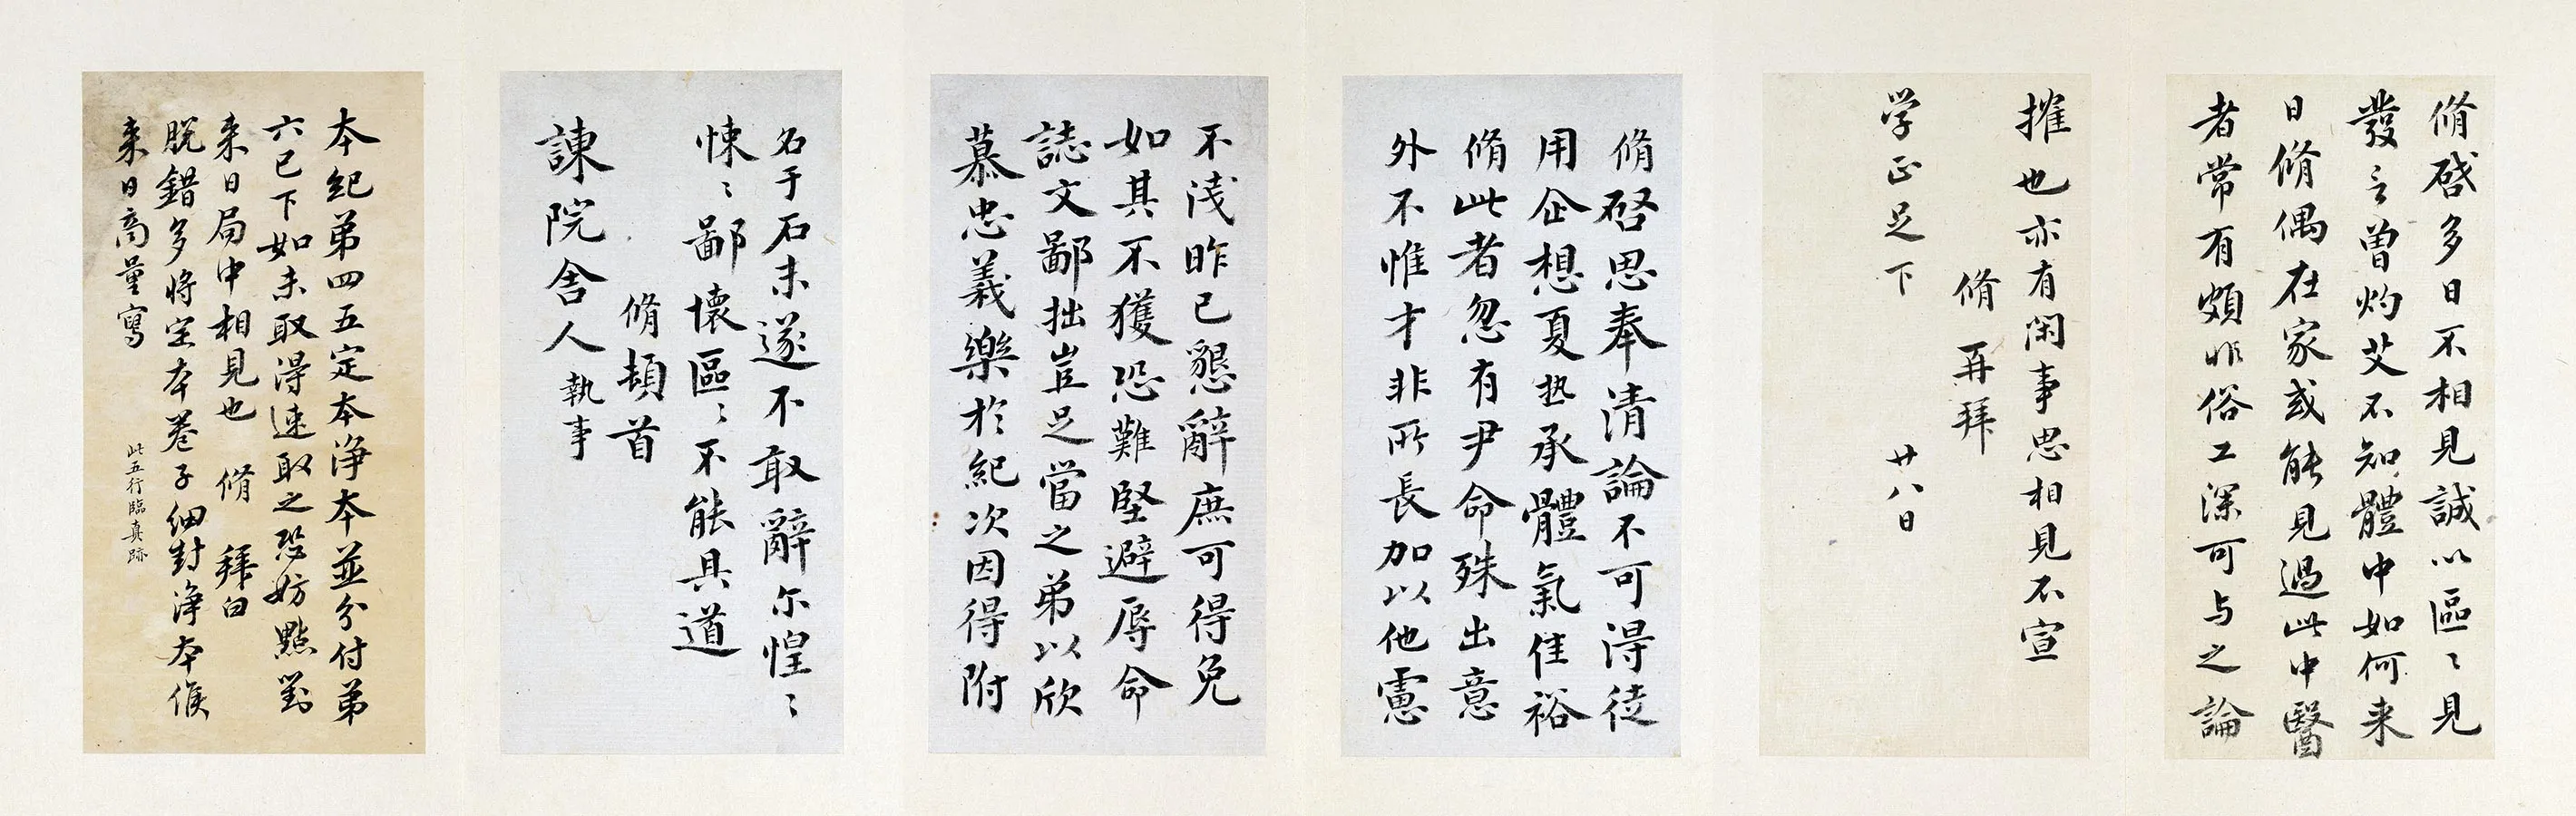 脩啓多日不相見誠以區〻見
發言曽灼艾不知體中如何来
日脩偶在家或能見過此中醫
者常有頗非俗工深可与之論
搉也亦有閑事思相見不宣
脩再拜
学正足下 廿八日
脩啓思奉清論不可得徒
用企想夏热承體氣佳裕
脩此者忽有尹命殊出意
外不惟才非所長加以他慮
不浅昨已懇辭庶可得免
如其不獲恐難堅避辱命
誌文鄙拙豈足當之弟以欣
慕忠義樂於紀次因得附
名于石未遂不敢辭尓惶〻
悚〻鄙懷區〻不能具道
脩頓首
諫院舍人執事
本紀弟四五定本浄本並分付弟
六已下如未取得速取之恐妨點對
来日局中相見也 脩 拜白
脱錯多将定本卷子細封浄本候
来日商量寫
此五行臨真跡